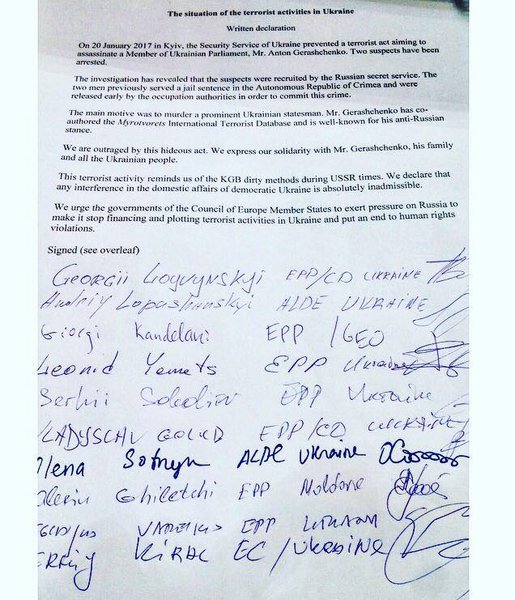 The situation of the terrorist activities in Ukraine
Written declaration
On 20 January 2017 in Kyiv, the Security Service of Ukraine prevented a terrorist act aiming to
assassinate a Member of Ukrainian Parliament, Mr. Anton Gerashchenko. Two suspects have been
arrested.
The investigation has revealed that the suspects were recruited by the Russian secret service. The
two men previously served a jail sentence in the Autonomous Republic of Crimea and were
released early by the occupation authorities in order to commit this crime.
The main motive was to murder a prominent Ukrainian statesman. Mr. Gerashchenko has co-
authored the Myrotvorets International Terrorist Database and is well-known for his anti-Russian
stance.
We are outraged by this hideous act. We express our solidarity with Mr. Gerashchenko, his family
and all the Ukrainian people.
This terrorist activity reminds us of the KGB dirty methods during USSR times. We declare that
any interference in the domestic affairs of democratic Ukraine is absolutely inadmissible.
We urge the governments of the Council of Europe Member States to exert pressure on Russia to
make it stop financing and plotting terrorist activities in Ukraine and put an end to human rights
violations.
Signed (see overleaf)
Georgii Logvynskyi EPP/CD UKRAINE
Andriy Lopushanskyi ALDE UKRAINE
Giorgi Kandelaki EPP /GEO
Leonid Yemets EPP Ukraine
Serhii Sobolev EPP Ukraine
EPP/CD UKRAINE
Sotnyk ALDE Ukraine
Ghiletchi EPP Moldova
EPP
EC /UKRAINE